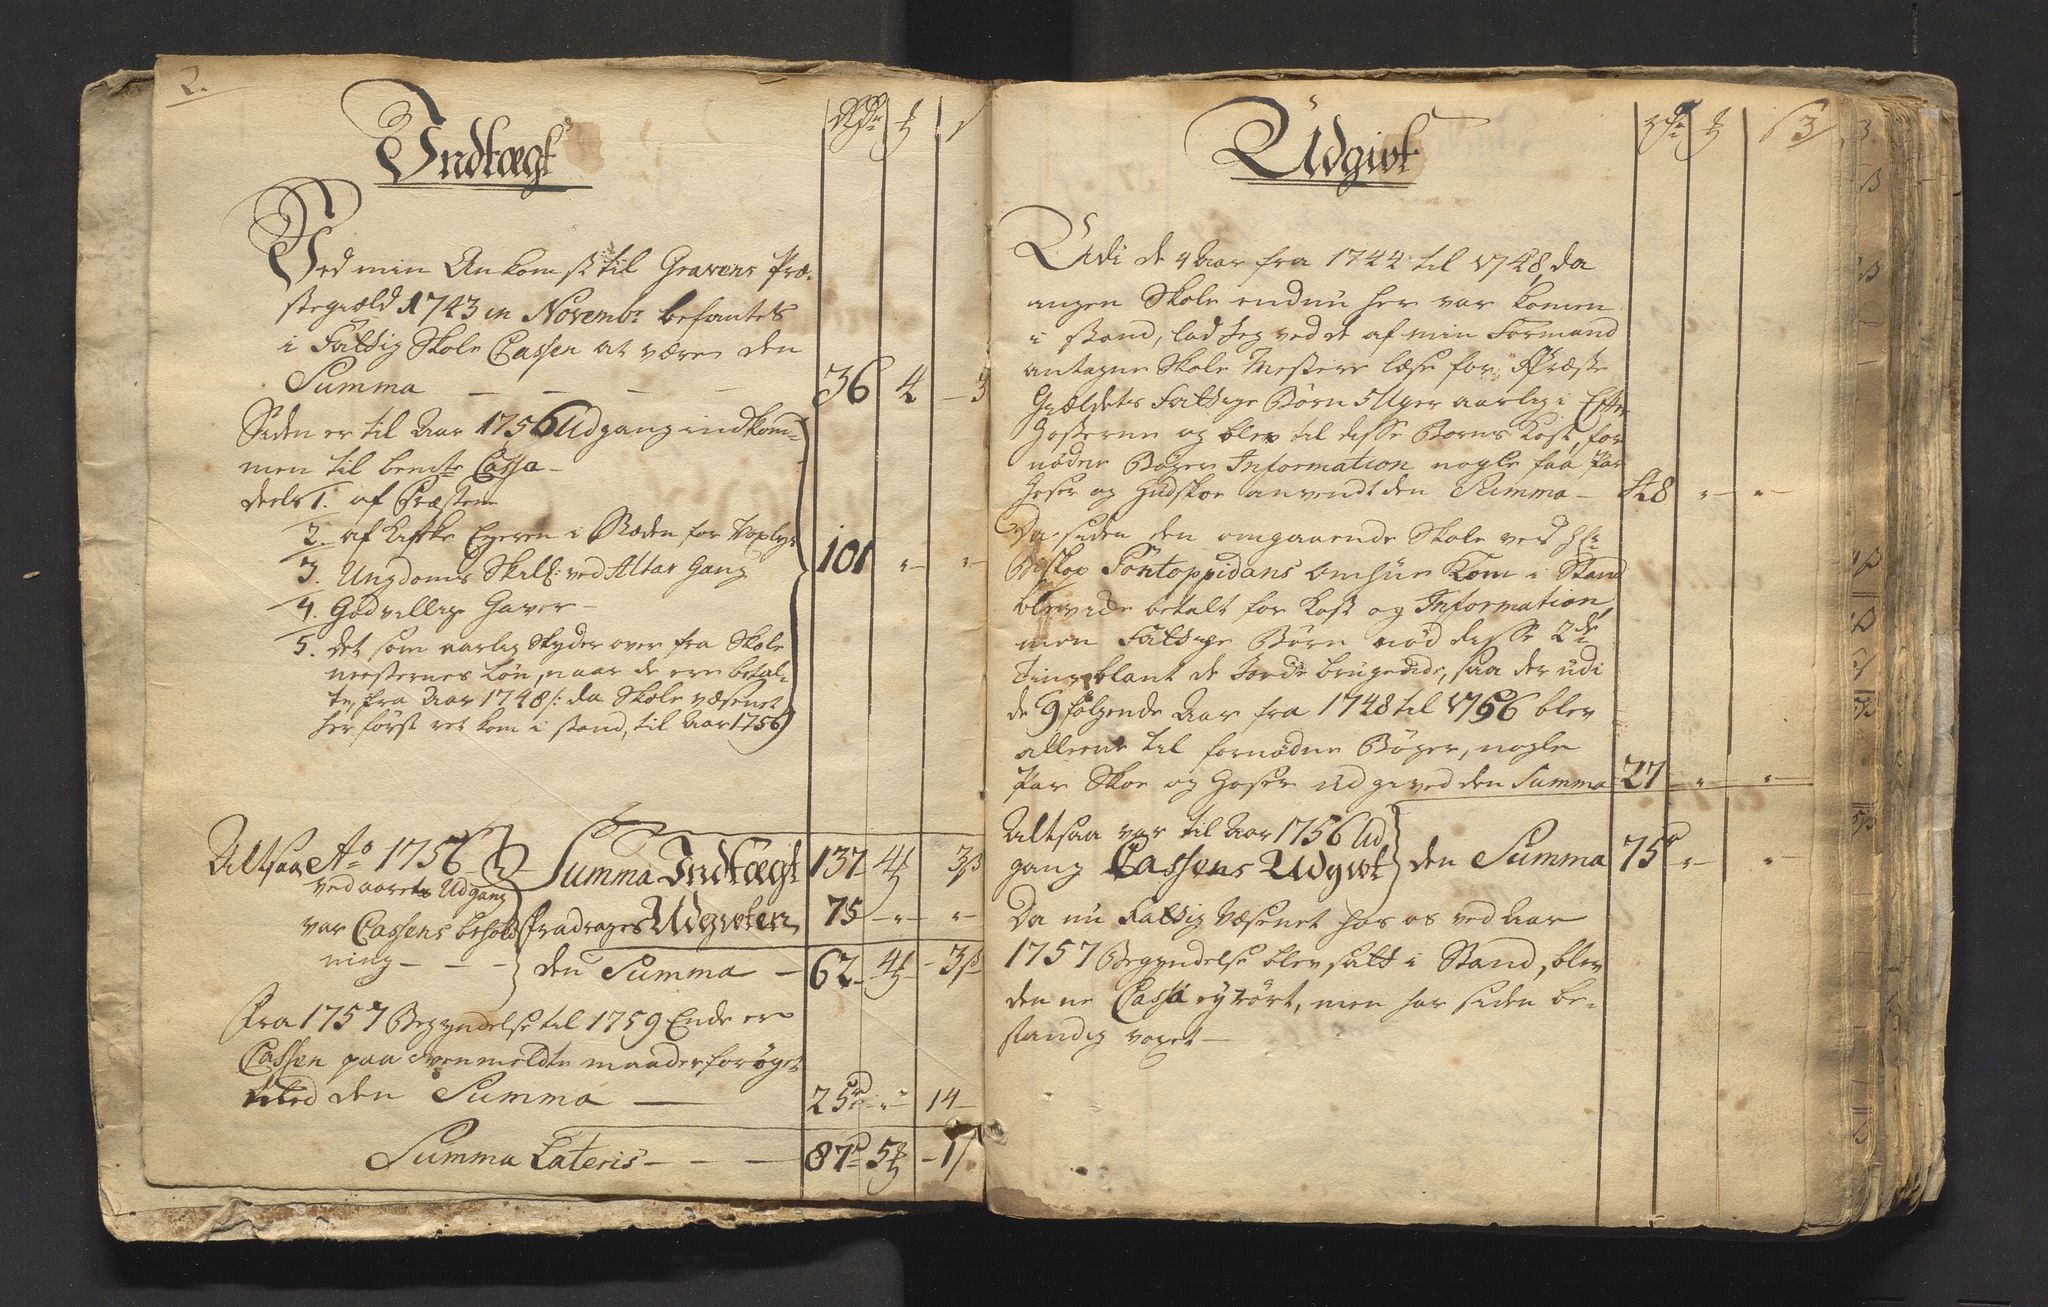 2.
Indtægt
Rdr
Ved min Ankomst til Gravens Præ-
stegiæld 1743 in Novembr befantes
i Fattig Skole Cassen at være den
Summa - - - - 36 4 - 3
Siden er til Aar 1756 Udgang indkom-
men til bemte Cassa -
deels 1. af Præsten
2. af Kirke Eyeren i Stæden for Voxlys 101 " - " -
3. Ungdoms Skill: ved Altar Gang
4. Godvillige Gaver -
5. det som aarlig skyder over fra Skole
mesternes Løn, naar de ere betal-
te, fra Aar 1748 /: da Skole væsenet
her først ret kom i stand, til Aar 1756
Altsaa Ao 1756 Summa Indtægt 137 4 3ß
ved aarets Udgang
var Cassens behold fradrages Udgivten 75 - " - " -
ning - - - den Summa - 62 - 4 - 3ß
Fra 1757 Begyndelse til 1759 Ende er
Cassen paa ovenmeldte maader forøget
med den Summa - 25 - " - 14 -
Summa Lateris - - - 87 5 - 1ß
3
Udgivt
Udi de 4 Aar fra 1744 til 1748, da
ingen Skole endnu her var komen
i stand, lod jeg ved de af min Formand
antagne Skole Mestere læse for Præste
Gieldets Fattige Børn 5 Uger aarlig i Efter
Høsterne og blev til disse Børns Kost, for
nødne Bøger Information nogle faa Par
Hoser og Gudskoe anvendt den Summa - 48 " - " -
Da siden den omgaaende Skole ved Hr
Biskop Pontoppidans Omhue kom i Stand
bleve de betalt for Kost og Information,
men Fattige Børn nød disse 2de
Ting blant de Jorde brugende, saa der udi
de 9 følgende Aar fra 1748 til 1756 blev
alleene til fornødne Bøger, nogle
Par Skoe og Hoser Udgived den Summa 27 - " - " -
Altsaa var til Aar 1756 Ud
gang Cassens Udgivt den Summa 75 " - " -
Da nu Fattig Væsenet hos os ved Aar
1757 Begyndelse blev satt i Stand, blev
denne Cassa ey rørt, men har siden be-
standig voxet -